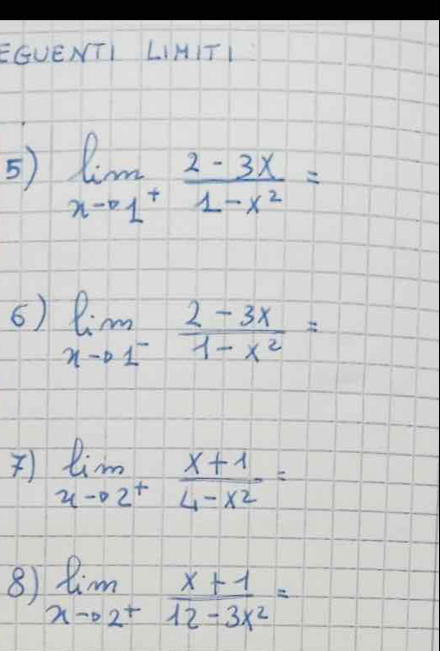 EGUENTI LIMITI
5) lim x→1⁺ (2 - 3x)/(1 - x²) =
6) lim x→1⁻ (2 - 3x)/(1 - x²) =
7) lim x→2⁺ (x + 1)/(4 - x²) =
8) lim x→2⁺ (x + 1)/(12 - 3x²) =